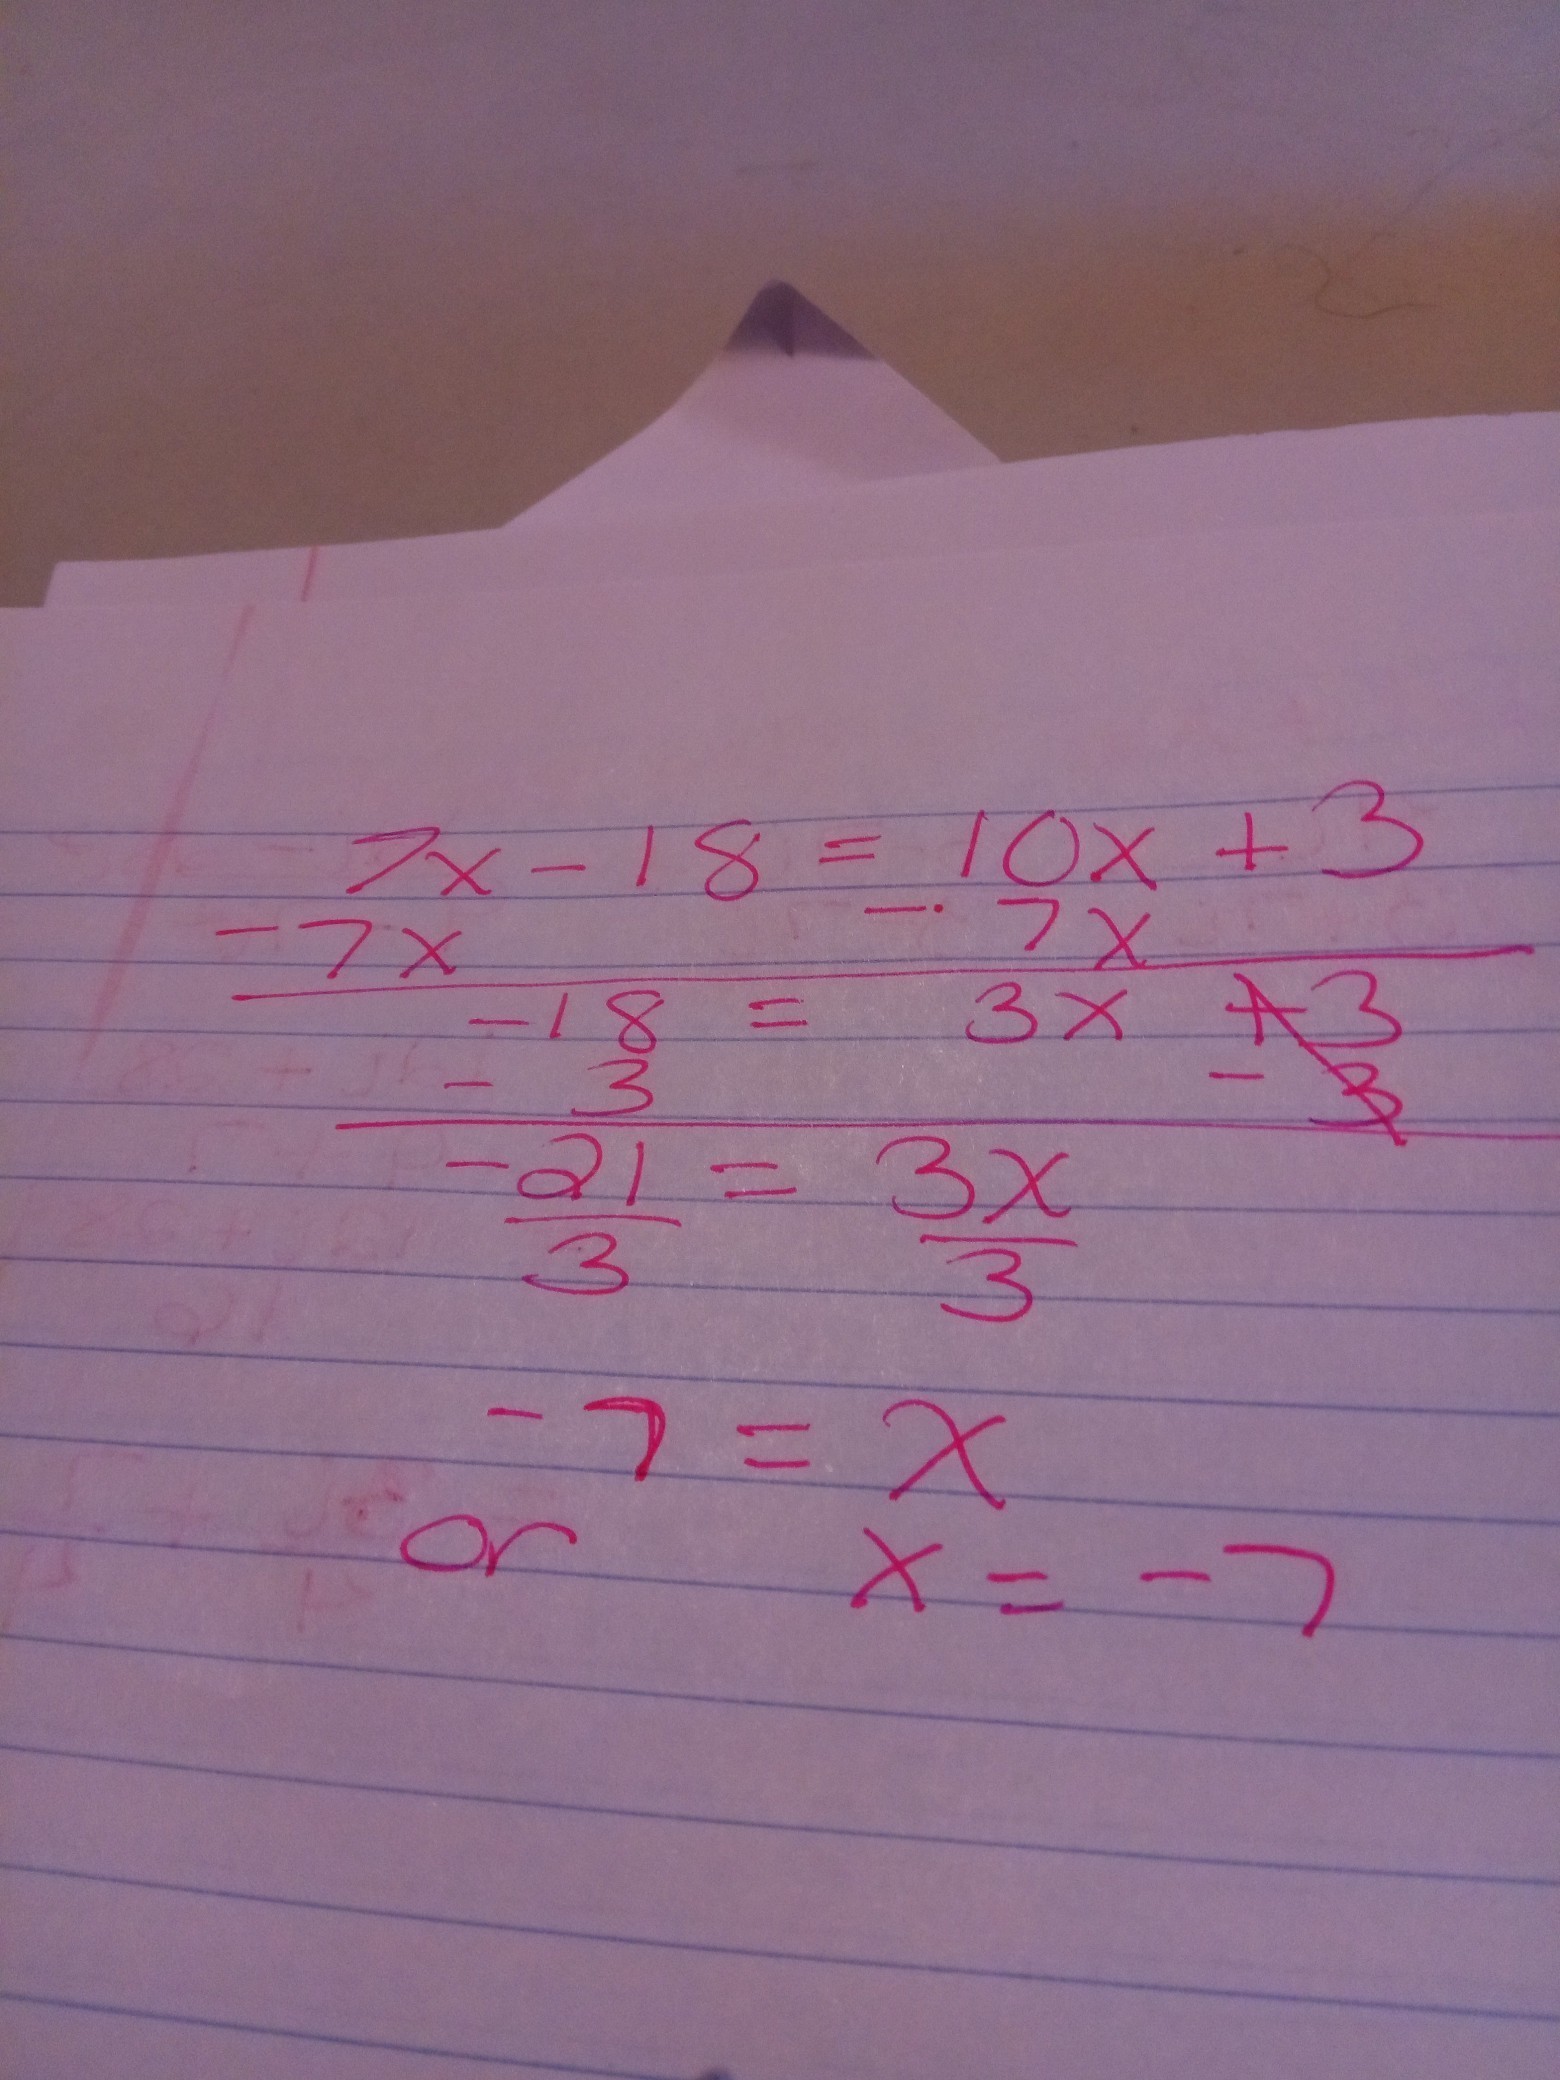 7x - 18 = 10x + 3
- 7x - 7x
- 18 = 3x + 3
- 3 - 3
- 21 = 3x
3 3
- 7 = x
or x = - 7